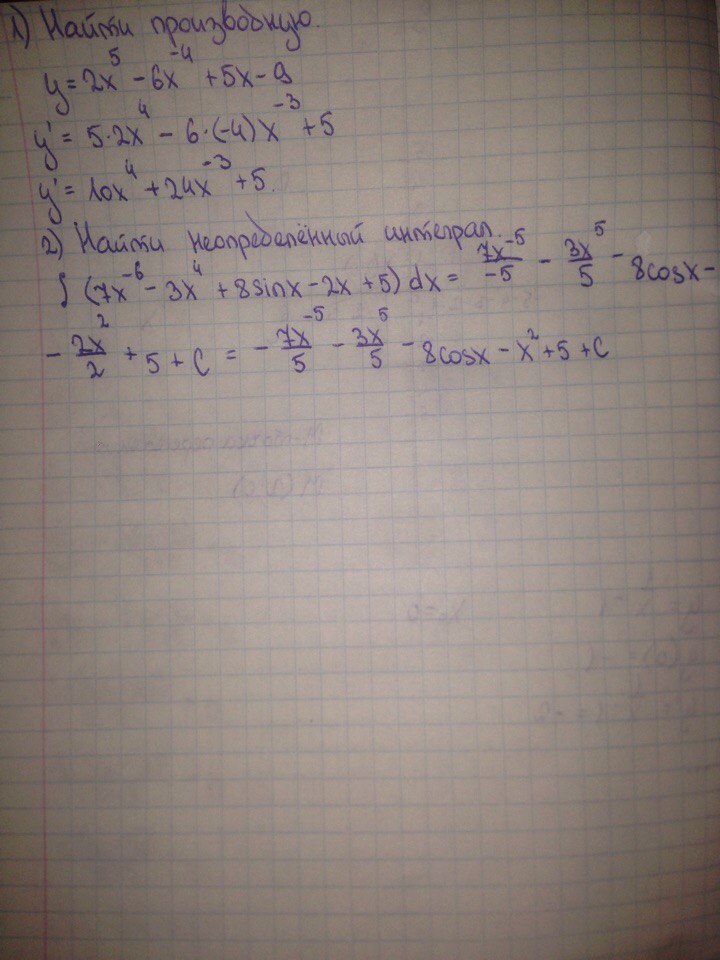 1) Найти производную.
y = 2x^5 - 6x^-4 + 5x - 9
y' = 5·2x^4 - 6·(-4)x^-3 + 5
y' = 10x^4 + 24x^-3 + 5.
2) Найти неопределённый интеграл.
∫ (7x^-6 - 3x^4 + 8sinx - 2x + 5) dx = 7x^-5/-5 - 3x^5/5 - 8cosx -
- 2x^2/2 + 5 + C = - 7x^-5/5 - 3x^5/5 - 8cosx - x^2 + 5 + C